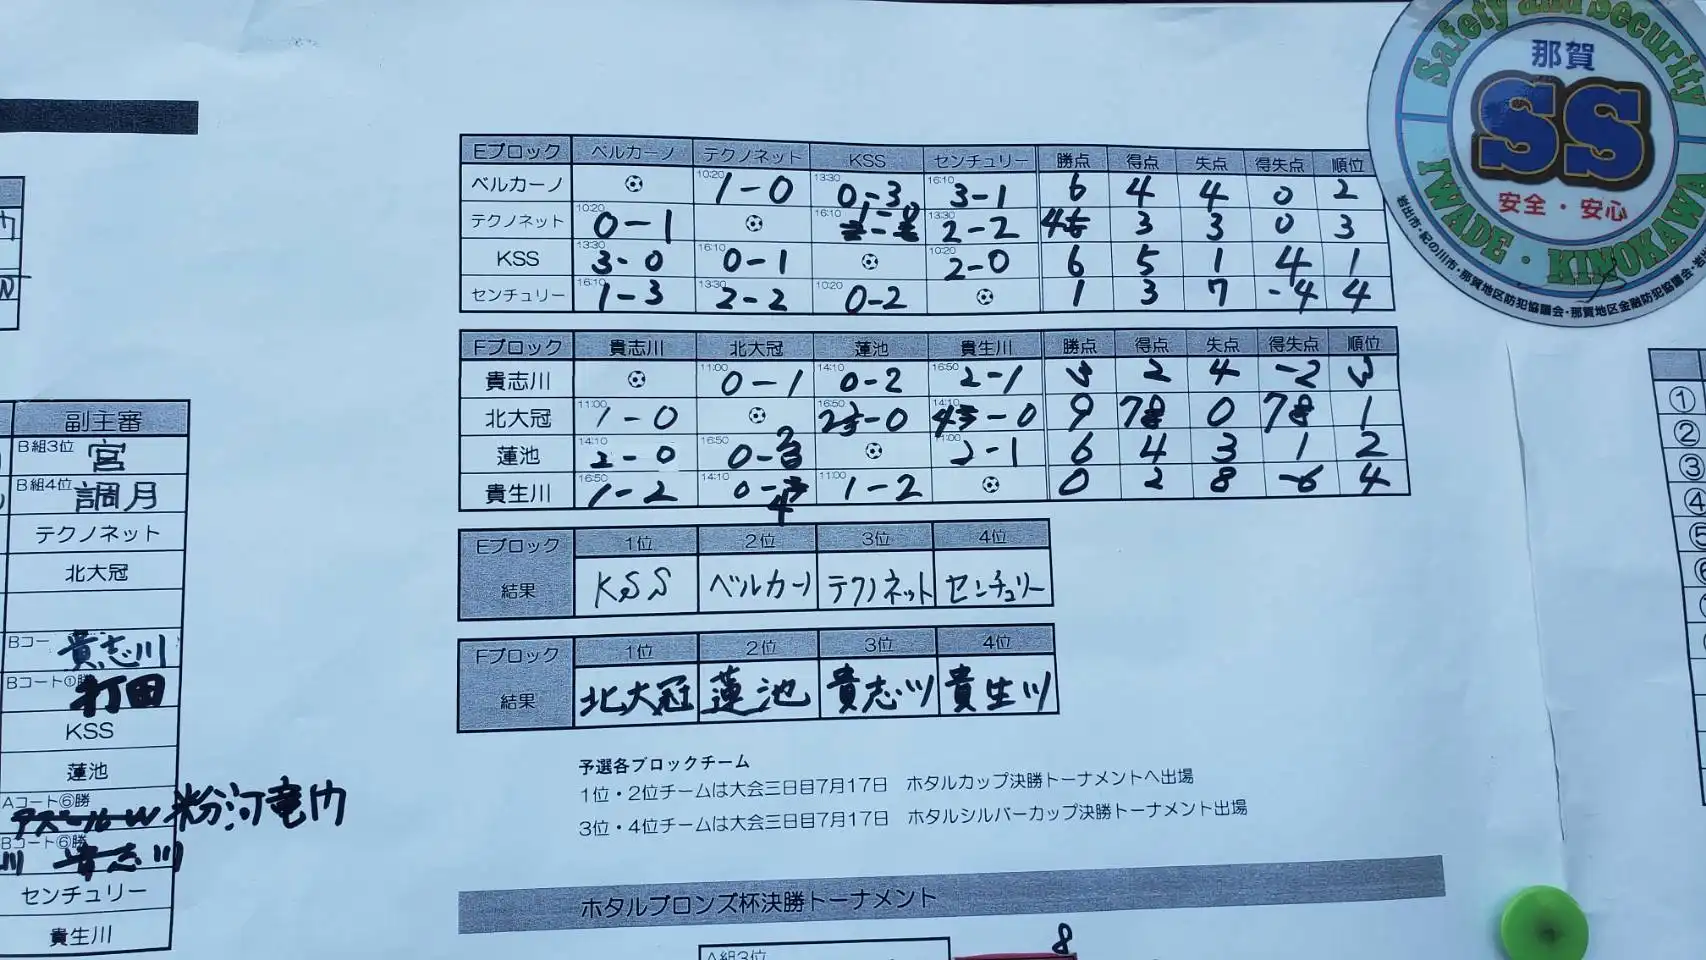 Safety and Security
那賀
SS
安全・安心
IWADE・KINOKAWA
Eブロック ベルカーノ テクノネット KSS センチュリー 勝点 得点 失点 得失点 順位
ベルカーノ 10:20 1-0 13:30 0-3 16:10 3-1 6 4 4 0 2
テクノネット 10:20 0-1 16:10 1-0 13:30 2-2 4 3 3 0 3
KSS 13:30 3-0 16:10 0-1 10:20 2-0 6 5 1 4 1
センチュリー 16:10 1-3 13:30 2-2 10:20 0-2 1 3 7 -4 4
Fブロック 貴志川 北大冠 蓮池 貴生川 勝点 得点 失点 得失点 順位
貴志川 11:00 0-1 14:10 0-2 16:50 2-1 3 2 4 -2 3
北大冠 11:00 1-0 16:50 2-0 14:10 4-0 9 7 0 7 1
蓮池 14:10 2-0 16:50 0-2 11:00 2-1 6 4 3 1 2
貴生川 16:50 1-2 14:10 0-4 11:00 1-2 0 2 8 -6 4
Eブロック 1位 2位 3位 4位
結果 KSS ベルカーノ テクノネット センチュリー
Fブロック 1位 2位 3位 4位
結果 北大冠 蓮池 貴志川 貴生川
予選各ブロックチーム
1位・2位チームは大会三日目7月17日 ホタルカップ決勝トーナメントへ出場
3位・4位チームは大会三日目7月17日 ホタルシルバーカップ決勝トーナメント出場
ホタルブロンズ杯決勝トーナメント
A組3位
8
副主審
B組3位 宮
B組4位 調月
テクノネット
北大冠
Bコー 貴志川
Bコート①勝 打田
KSS
蓮池
Aコート⑥勝
粉河竜門
Bコート⑥勝
貴志川
センチュリー
貴生川
①
②
③
④
⑤